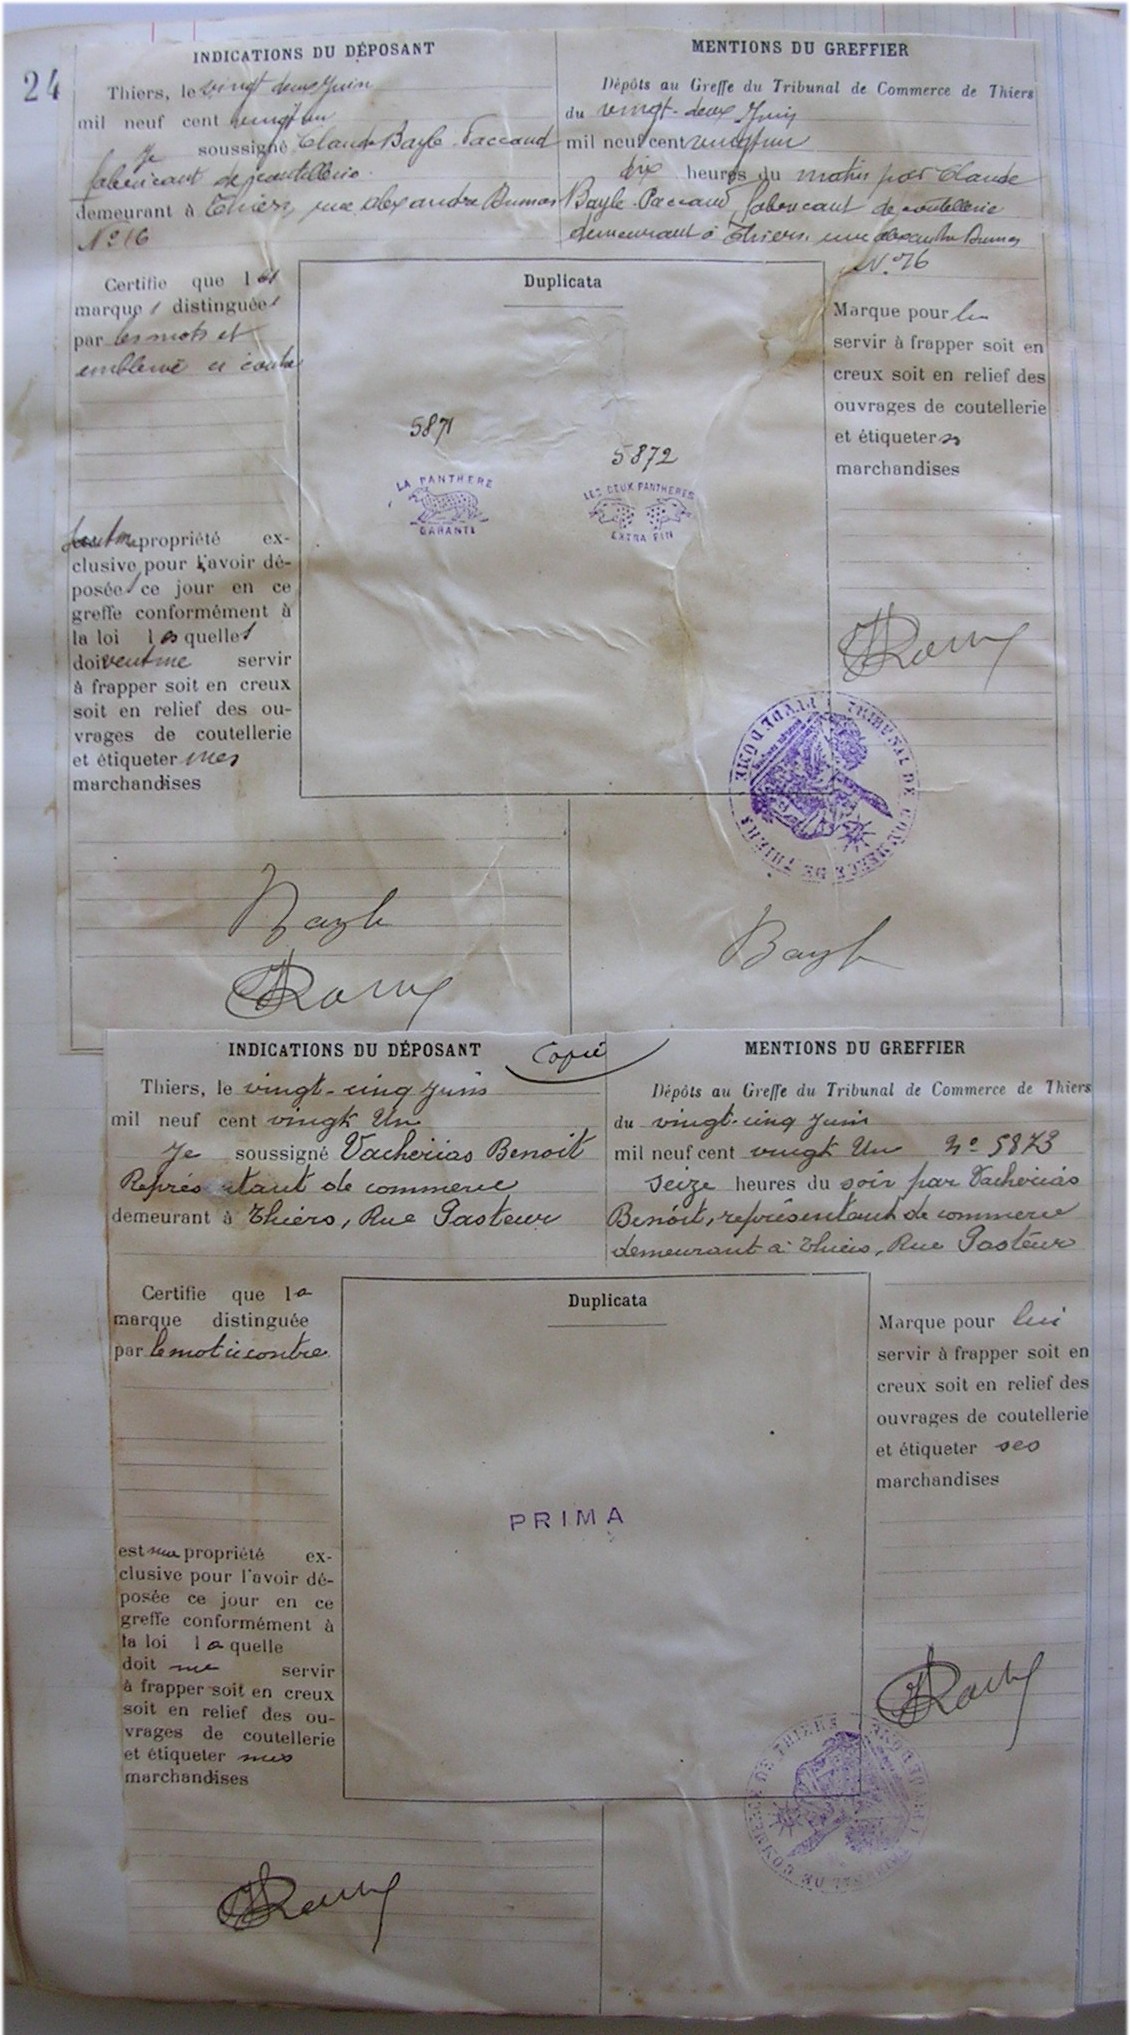 24
INDICATIONS DU DÉPOSANT
Thiers, le vingt deux Juin
mil neuf cent vingt un
Je soussigné Claude Bayle-Paccaud
fabricant de coutellerie
demeurant à Thiers, rue Alexandre Dumas
N° 16
Certifie que les
marques distinguées
par les mots et
emblème ci contre
5871
LA PANTHERE
GARANTI
5872
LES DEUX PANTHERES
EXTRA FIN
Duplicata
propriété ex-
clusive pour l'avoir dé-
posées ce jour en ce
greffe conformément à
la loi lesquelles
doivent me servir
à frapper soit en creux
soit en relief des ou-
vrages de coutellerie
et étiqueter mes
marchandises
Bayle
MENTIONS DU GREFFIER
Dépôts au Greffe du Tribunal de Commerce de Thiers
du vingt-deux Juin
mil neuf cent vingt un
dix heures du matin par Claude
Bayle-Paccaud, fabricant de coutellerie
demeurant à Thiers, rue Alexandre Dumas
N° 16
Marque pour lui
servir à frapper soit en
creux soit en relief des
ouvrages de coutellerie
et étiqueter ses
marchandises
TRIBUNAL DE COMMERCE DE THIERS
PUY DE DOME
Bayle
INDICATIONS DU DÉPOSANT
Copié
Thiers, le vingt-cinq Juin
mil neuf cent vingt Un
Je soussigné Vacherias Benoit
Représentant de commerce
demeurant à Thiers, Rue Pasteur
Certifie que la
marque distinguée
par le mot ci contre
Duplicata
PRIMA
est ma propriété ex-
clusive pour l'avoir dé-
posée ce jour en ce
greffe conformément à
la loi laquelle
doit me servir
à frapper soit en creux
soit en relief des ou-
vrages de coutellerie
et étiqueter mes
marchandises
MENTIONS DU GREFFIER
Dépôts au Greffe du Tribunal de Commerce de Thiers
du vingt-cinq Juin
mil neuf cent vingt Un N° 5873
Seize heures du soir par Vacherias
Benoit, représentant de commerce
demeurant à Thiers, Rue Pasteur
Marque pour lui
servir à frapper soit en
creux soit en relief des
ouvrages de coutellerie
et étiqueter ses
marchandises
TRIBUNAL DE COMMERCE DE THIERS
PUY DE DOME